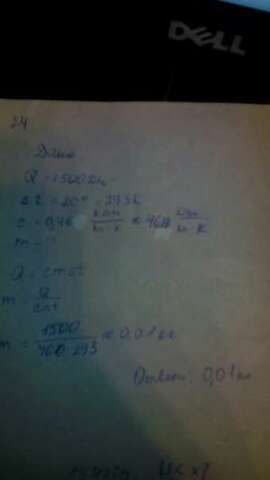 DELL
24
Дано
Q = 1500 Дж
Δt = 20° = 293 К
c = 0,46 кДж/кг·К = 460 Дж/кг·К
m - ?
Q = cmΔt
m = Q/cΔt
m = 1500/460·293 ≈ 0,01 кг
Ответ: 0,01 кг